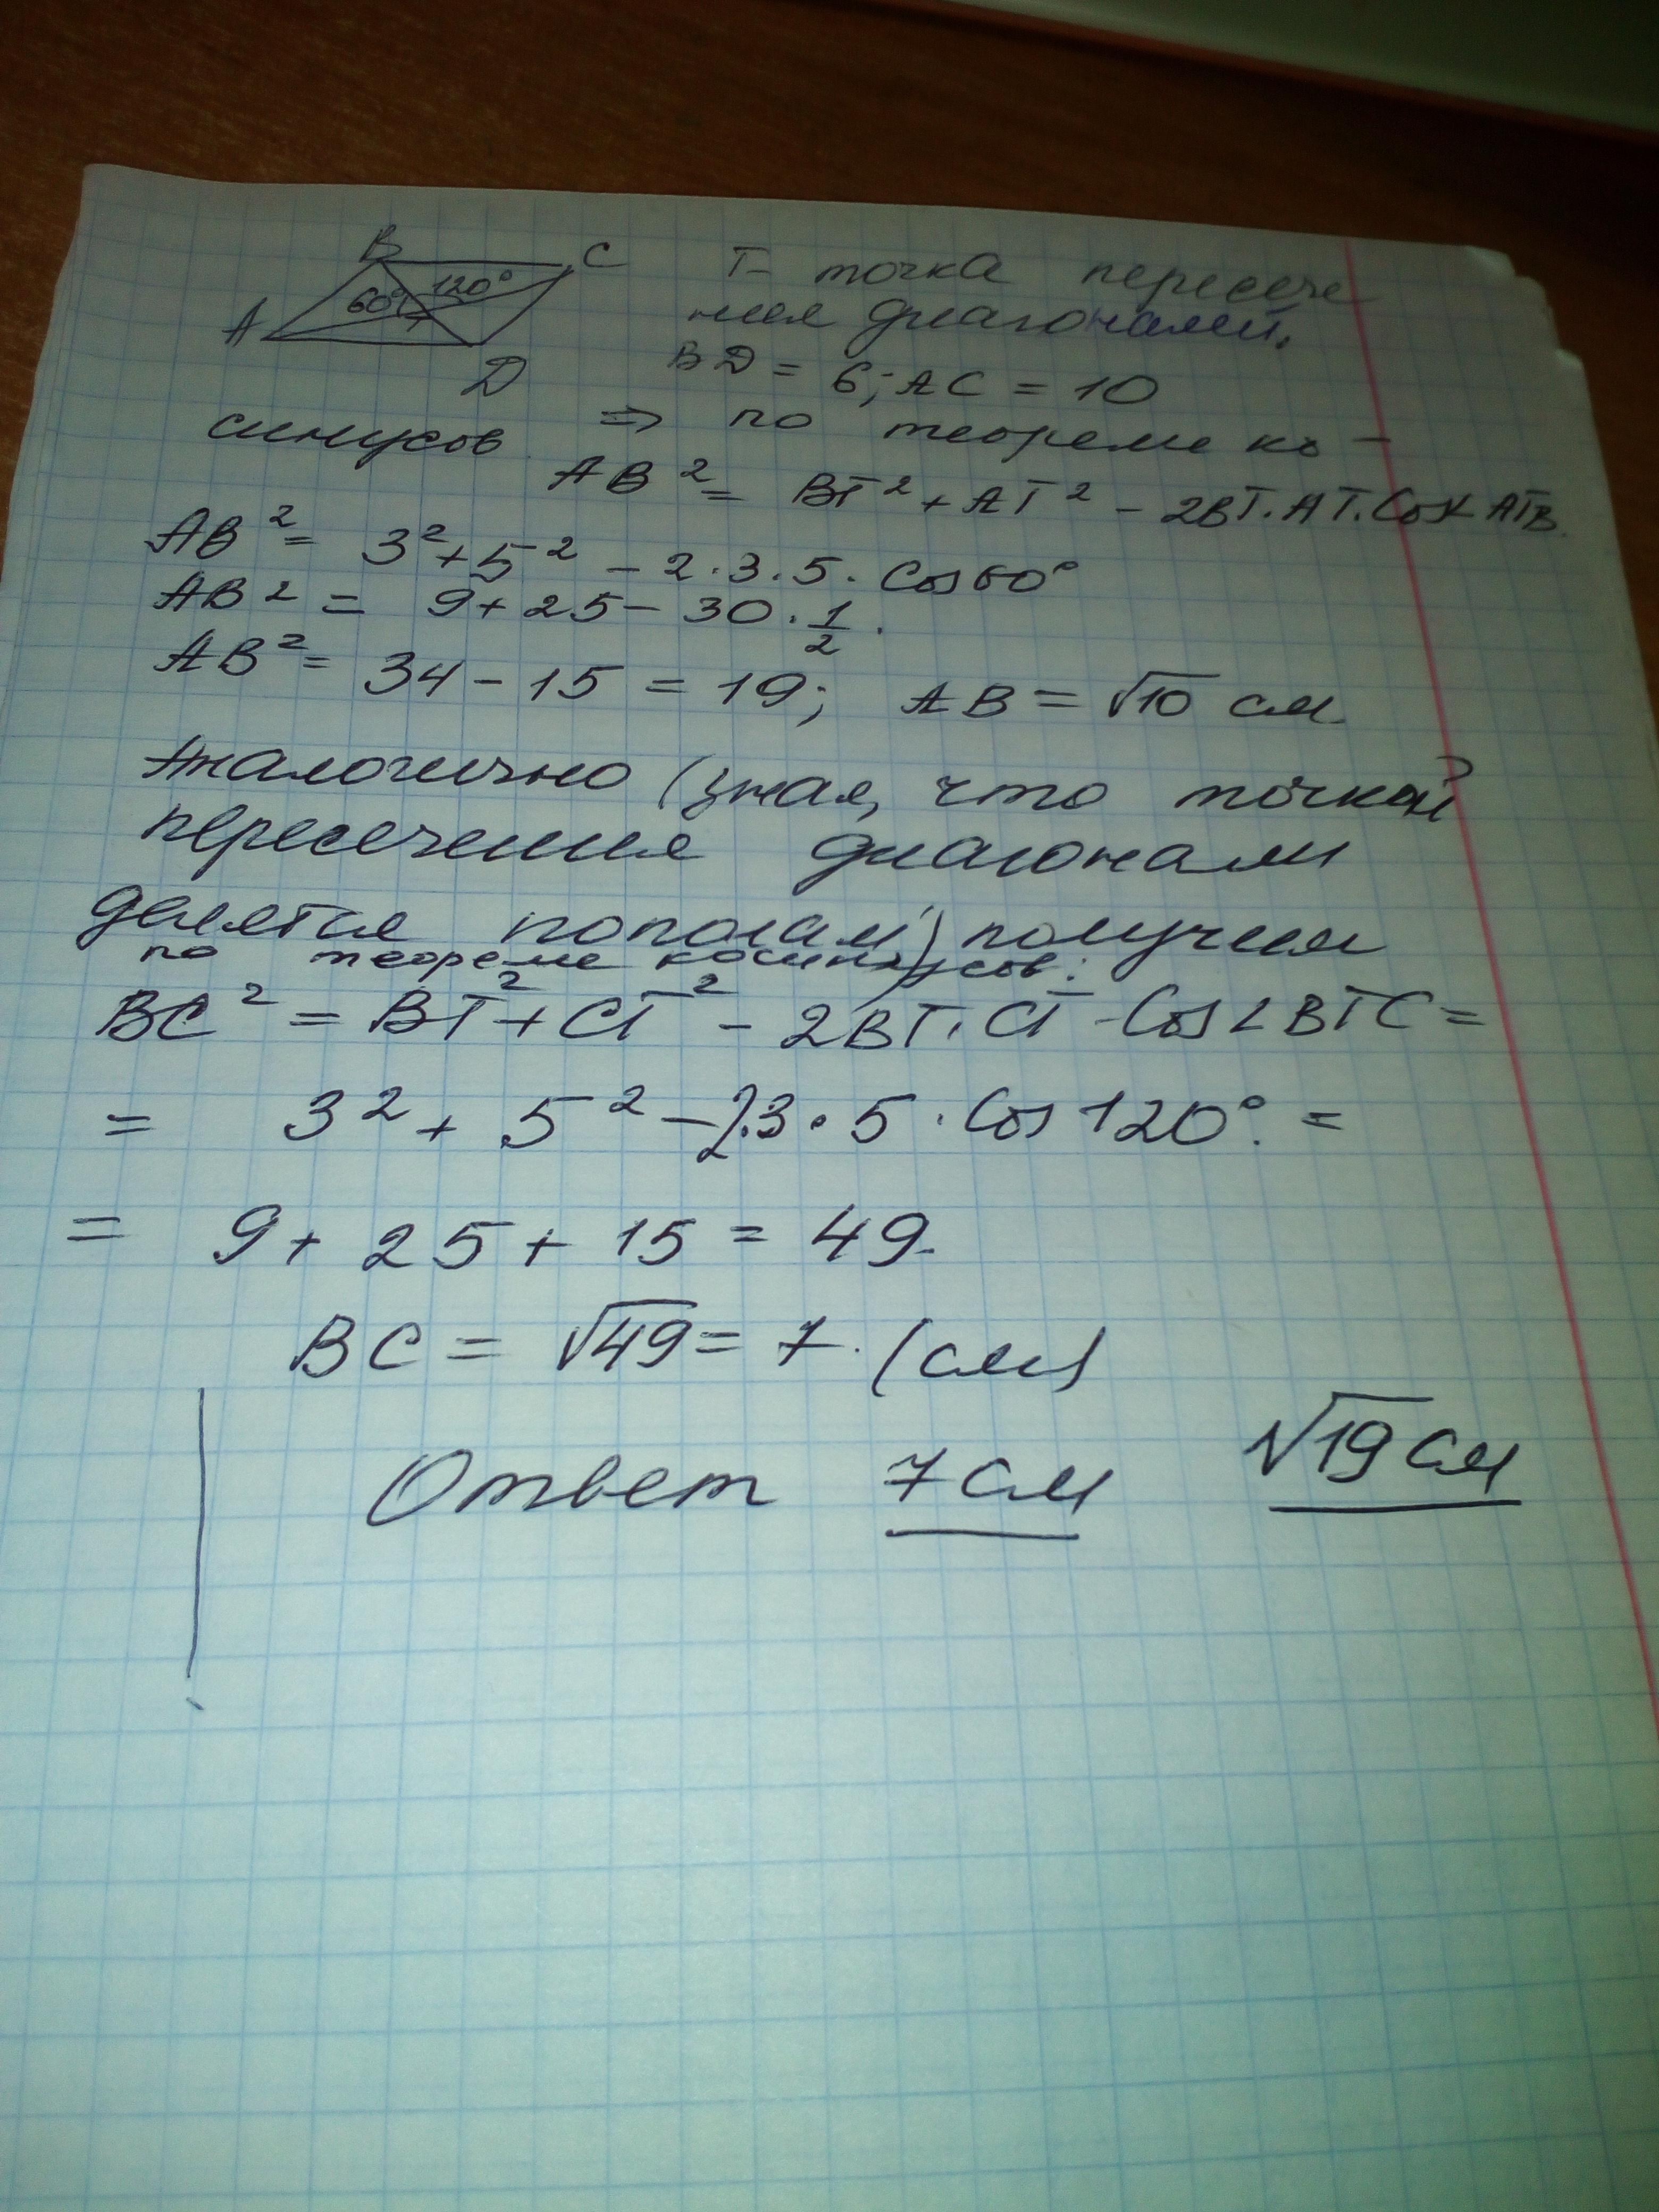 B C
60° 120°
A T
D
T - точка пересече
ния диагоналей.
BD = 6; AC = 10
⇒ по теореме ко-
синусов
AB² = BT² + AT² - 2BT·AT·Cos∠ATB.
AB² = 3² + 5² - 2·3·5·Cos60°
AB² = 9 + 25 - 30·1/2.
AB² = 34 - 15 = 19; AB = √10 см
Аналогично (зная, что точкой
пересечения диагонали
делятся пополам) получим
по теореме косинусов:
BC² = BT² + CT² - 2BT·CT·Cos∠BTC =
= 3² + 5² - 2·3·5·Cos120° =
= 9 + 25 + 15 = 49.
BC = √49 = 7. (см)
Ответ 7 см √19 см